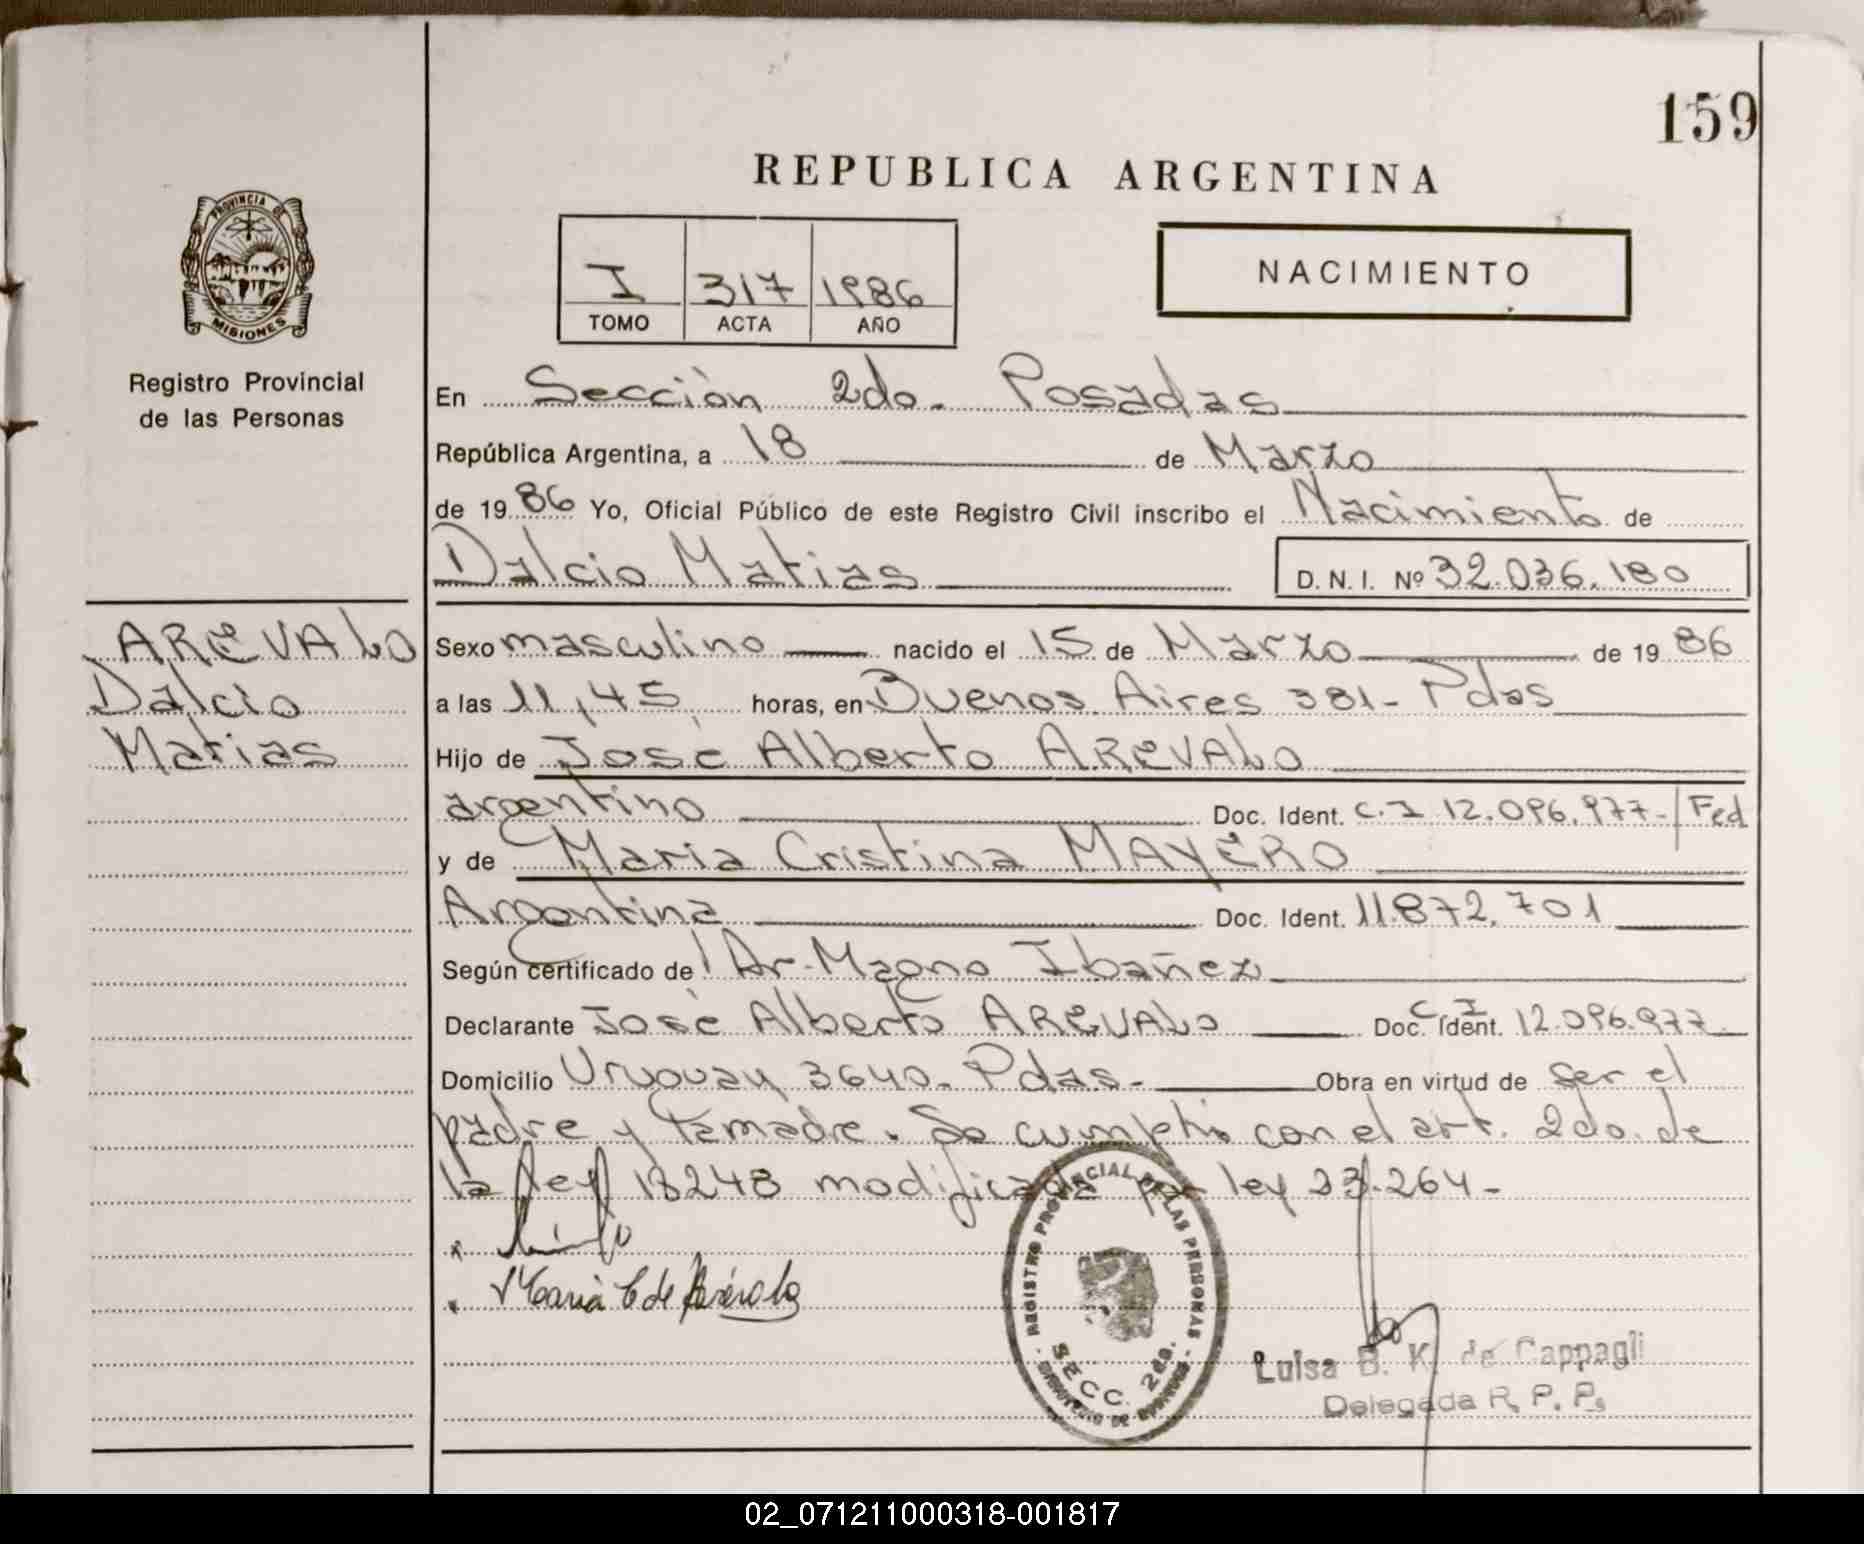 159
REPUBLICA ARGENTINA
PROVINCIA DE
MISIONES
Registro Provincial
de las Personas
I 317 1986
TOMO ACTA AÑO
NACIMIENTO
En Sección 2do. Posadas
República Argentina, a 18 de Marzo
de 1986 Yo, Oficial Público de este Registro Civil inscribo el Nacimiento de
Dalcio Matias D. N. I. Nº 32.036.180
AREVALO
Dalcio
Matias
Sexo masculino nacido el 15 de Marzo de 1986
a las 11,45 horas, en Buenos Aires 381- Pdas
Hijo de José Alberto AREVALO
argentino Doc. Ident. C. I 12.096.977-/Fed
y de Maria Cristina MAYERO
Argentina Doc. Ident. 11.872.701
Según certificado de Dr. Magno Ibañez
Declarante José Alberto AREVALO Doc. Ident. C I 12.096.977
Domicilio Uruguay 3640- Pdas- Obra en virtud de ser el
padre y la madre. Se cumplió con el art. 2do. de
la ley 18248 modificada por ley 23.264-
Maria C de Arévalo
REGISTRO PROVINCIAL DE LAS PERSONAS
SECC. 2da.
Luisa B. K. de Cappagli
Delegada R. P. P.
02_071211000318-001817